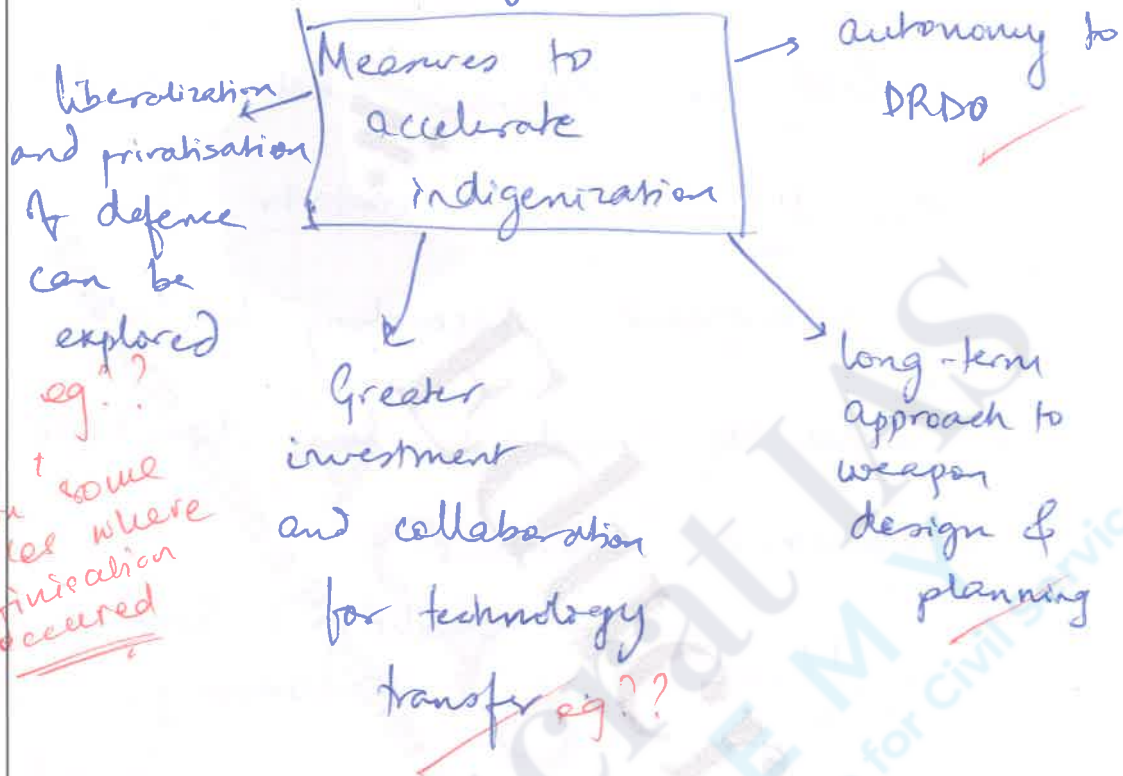 Measures to
accelerate
indigenization
autonomy to
DRDO
liberalization
and privatisation
of defence
can be
explored
eg??
some
where
occured
Greater
investment
and collaboration
for technology
transfer eg??
long-term
approach to
weapon
design &
planning
crat IAS
E M Y
for Civil Servic